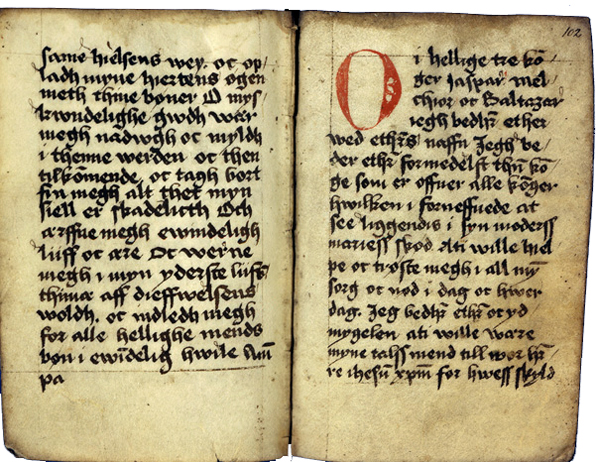 same hielsens wey. oc op
ladh myne hiertens øgen
meth thine bøner O mys
kwndelighe gwdh wær
megh nadwgh oc myldh
i thenne werden oc then
tilkōmende, oc tagh bort
frā megh alt thet myn
siell er skadelicth Och
ærffue megh ewindeligh
liiff oc ære Oc werne
megh i myn yderste liifs
thimæ aff dieffwelsens
woldh, oc indledh megh
for alle hellighe mends
bøn i ewīdelig hwile Am̄
pa
102
O i hellige tre kō
ger Jaspar Mel
chior oc Baltazar
iegh bedhr̄ ether
wed ethr̄s naffn Jegh be
der ethr̄ formedelst thn̄ kō
ge som er offuer alle kōger
hwilken i forneffuede at
see liggendis i syn moderss
mariess skød Ati wille hiel
pe oc trøste megh i all my̅
sorg oc nød i dag oc hwer
dag. Jeg bedhr̄ ethr̄ oc yd
mygelen ati wille wære
myne talss mend till wor hr̄
re ihesū xpm̄ for hwess skyld